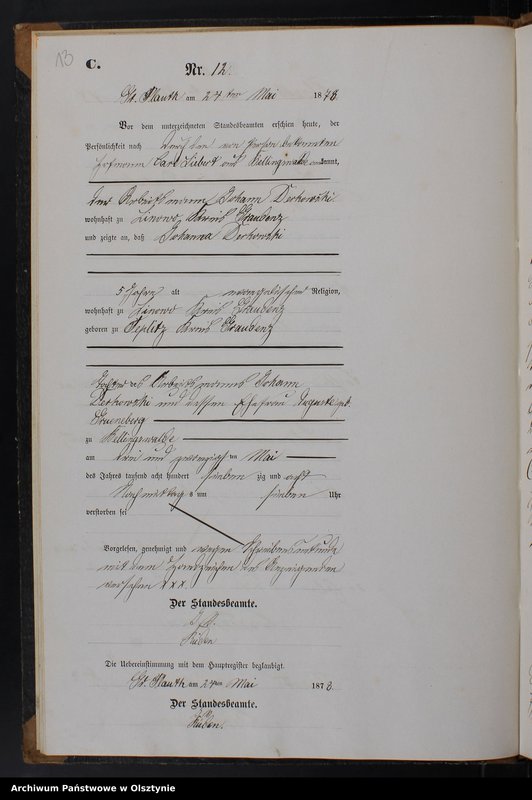 13
C.
Nr. 12.
Gr. Plauth am 24ten Mai 1878.
Vor dem unterzeichneten Standesbeamten erschien heute, der
Persönlichkeit nach durch den von Person bekannten
Carl Liebert aus Kellingswalde anerkannt,
der Arbeitsmann Johann Derkowski
wohnhaft zu Linowo Kreis Graudenz
und zeigte an, daß Johanna Derkowski
5 Jahre alt evangelischer Religion,
wohnhaft zu Linowo Kreis Graudenz
geboren zu Kreis Graudenz
Tochter des Arbeitsmanns Johann
Derkowski und dessen Ehefrau Auguste geb.
Grueneberg
zu Kellingswalde
am drei und zwanzigsten Mai
des Jahres tausend acht hundert sieben zig und acht
Nachmittags um sieben Uhr
verstorben sei
Vorgelesen, genehmigt und wegen Schreibensunkunde
mit dem Handzeichen des Anzeigenden
versehen xxx.
Der Standesbeamte.
Die Uebereinstimmung mit dem Hauptregister beglaubigt.
Gr. Plauth am 24ten Mai 1878.
Der Standesbeamte.
Archiwum Państwowe w Olsztynie